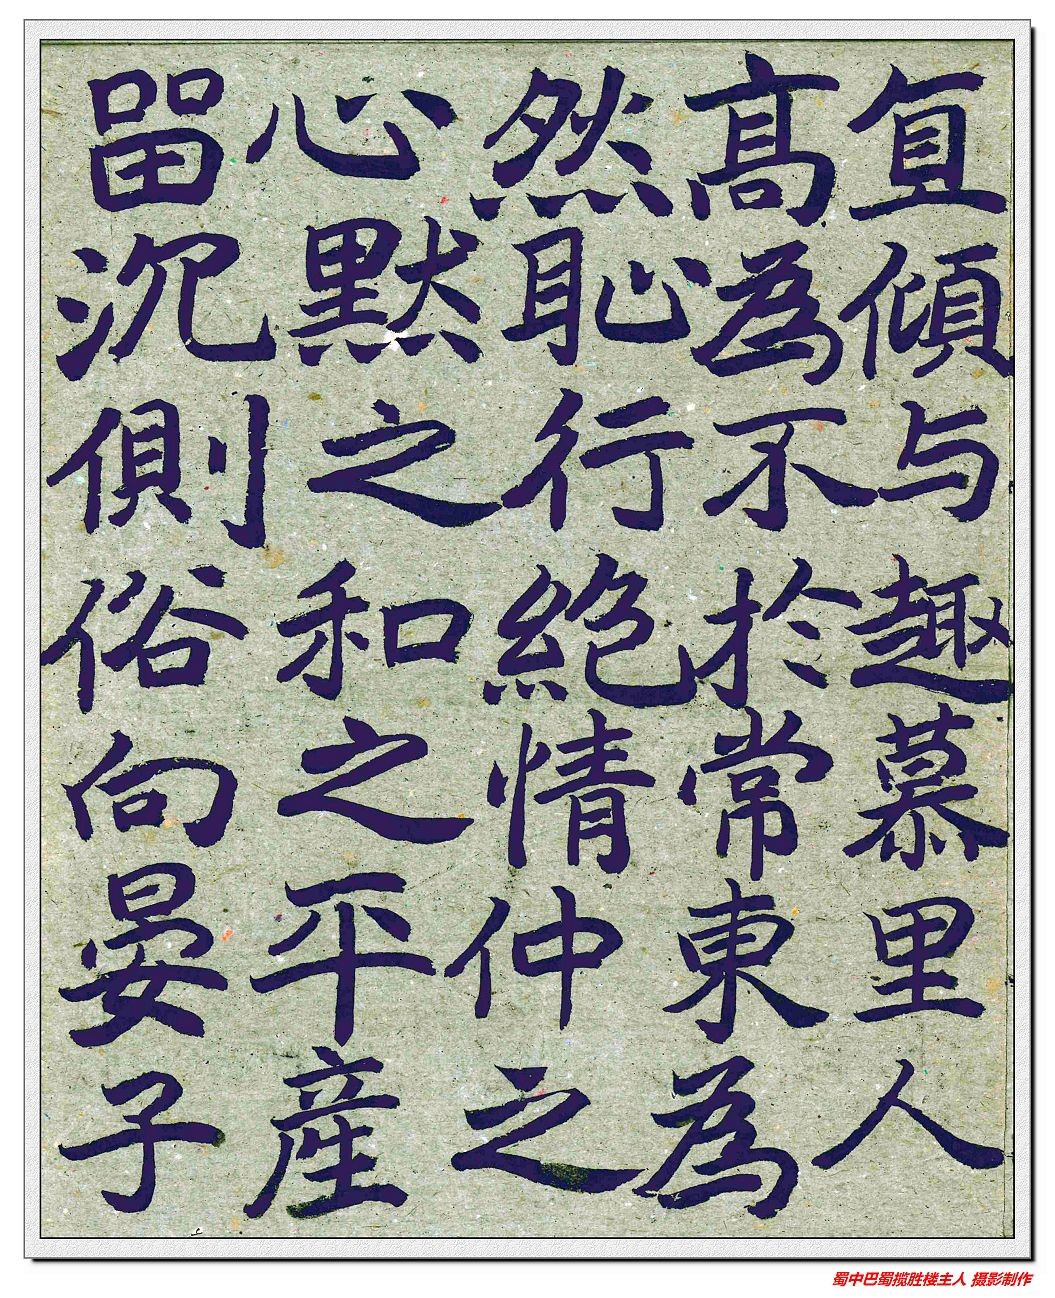 直傾与趣慕里人
髙為不於常東為
然恥行絶情仲之
心默之和之平産
㽞沉側俗向晏子
蜀中巴蜀揽胜楼主人 摄影制作